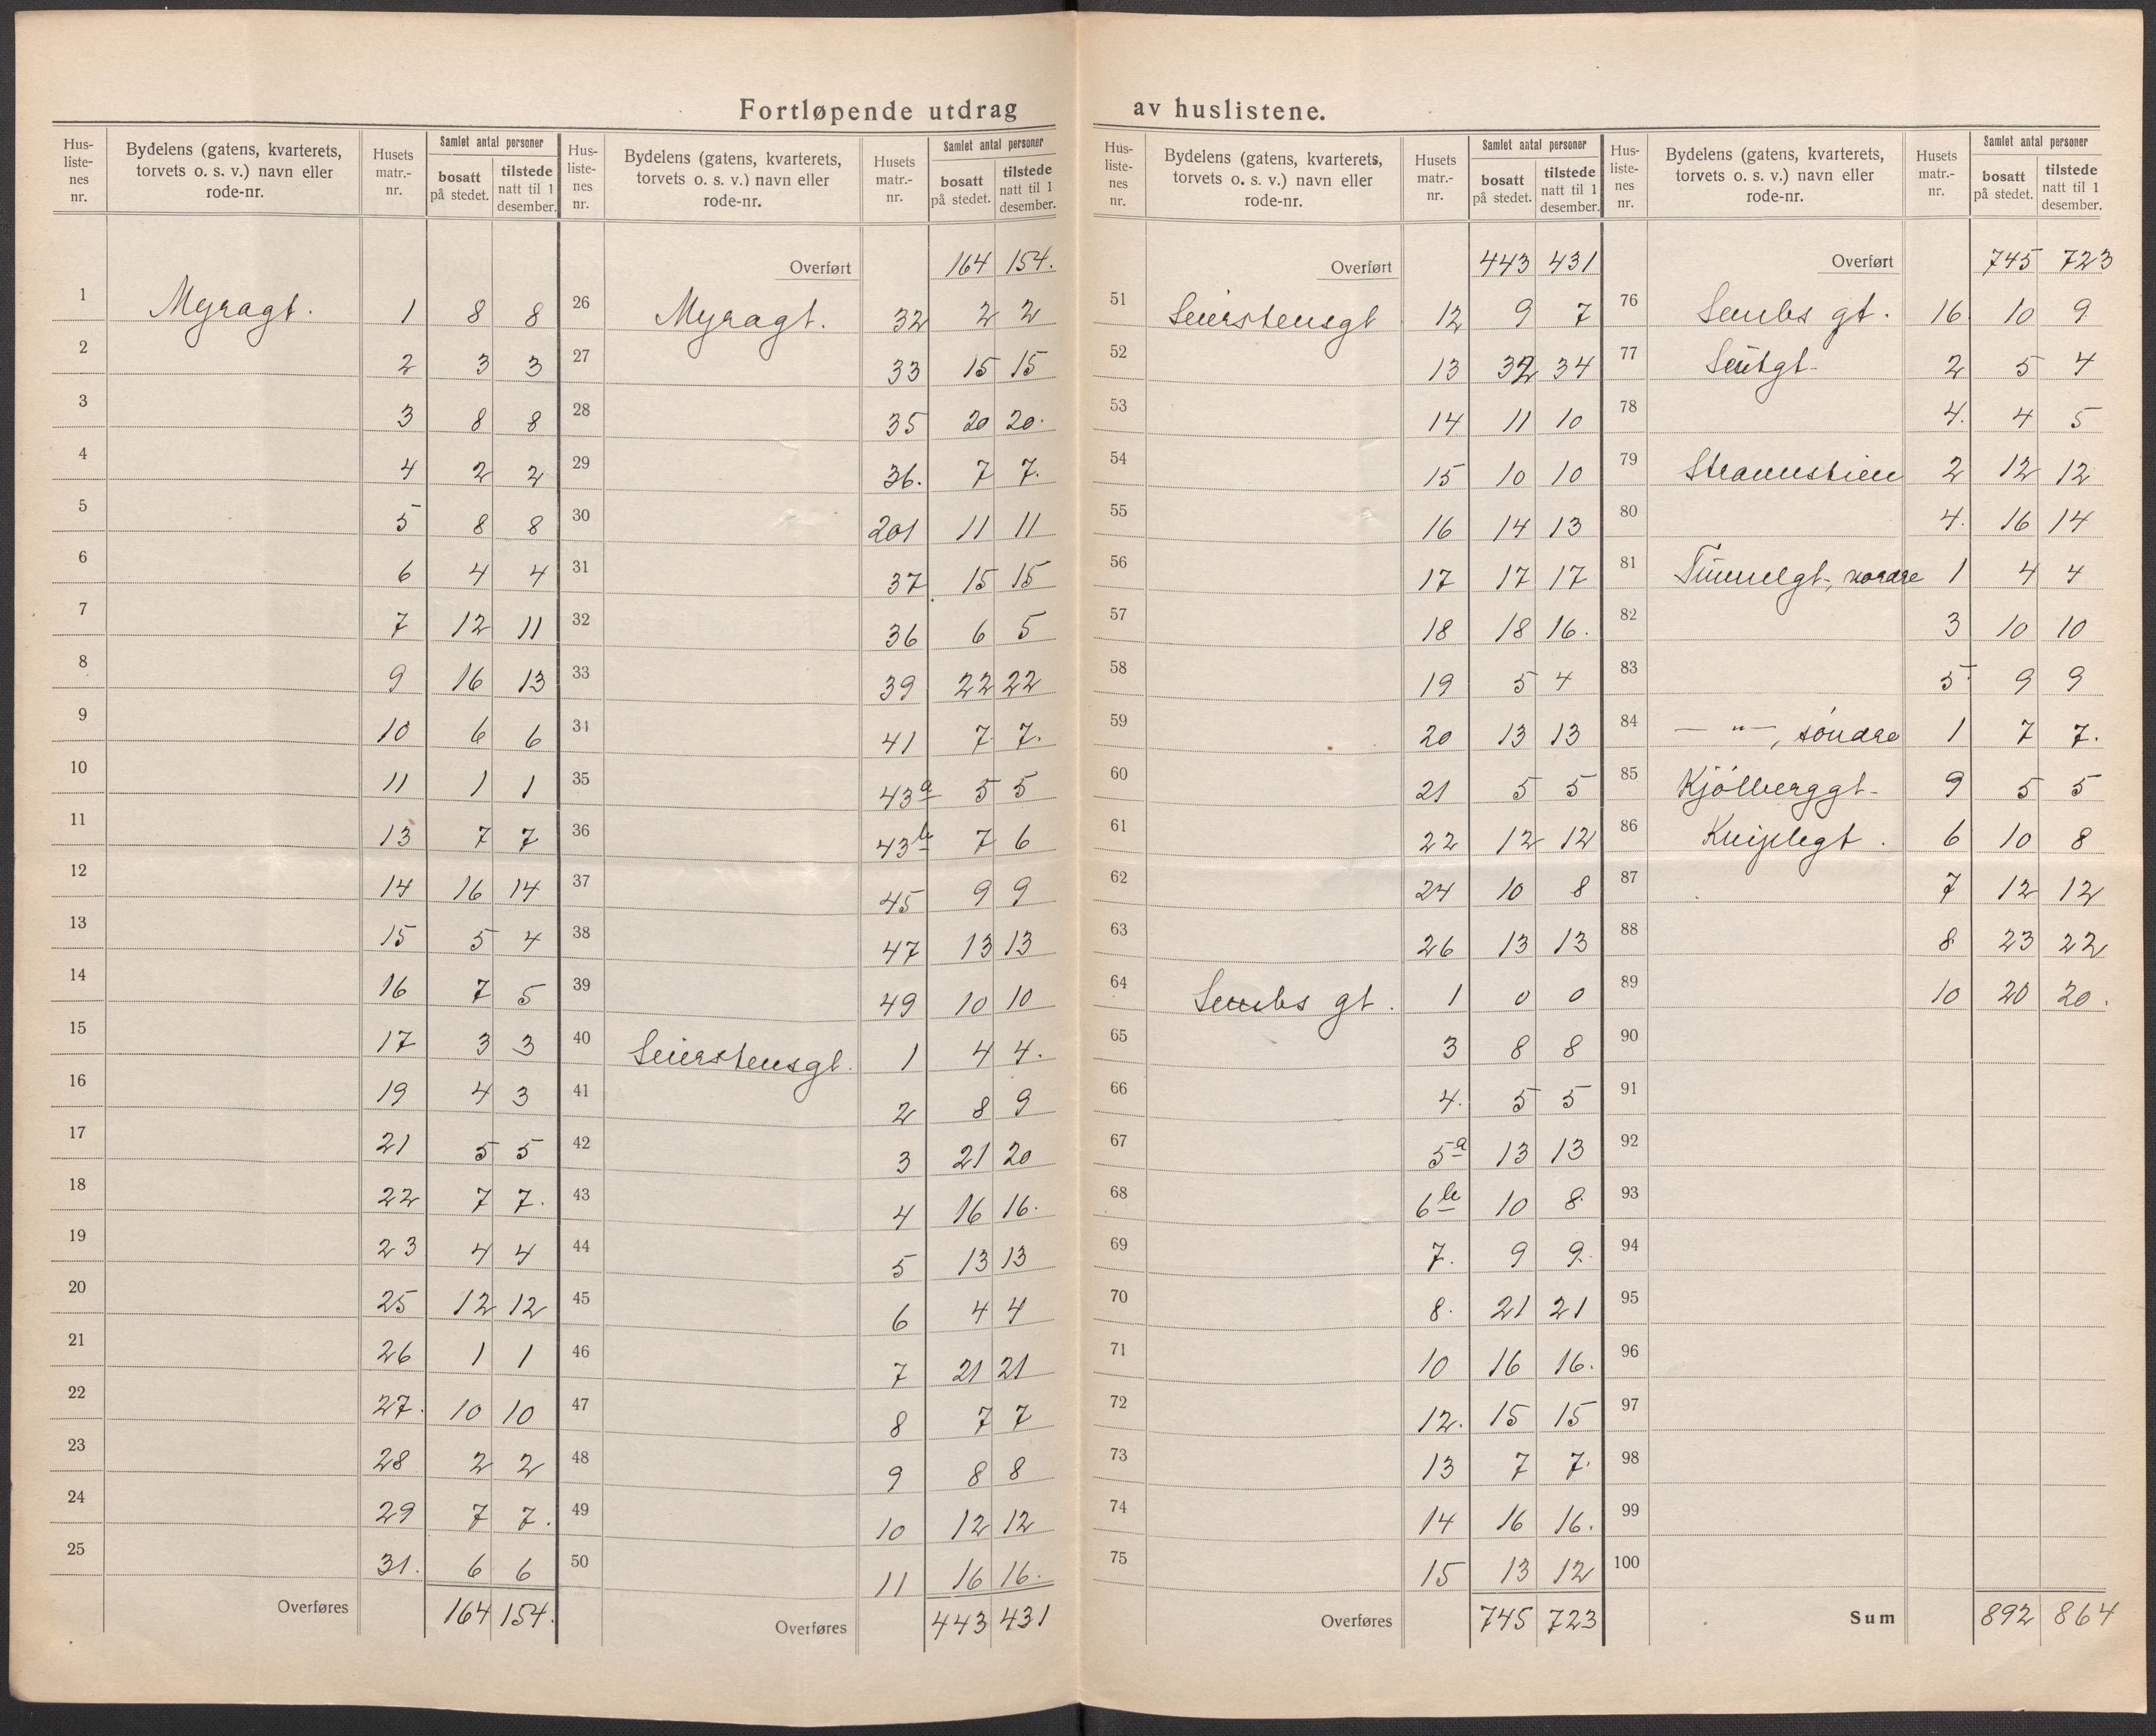 Fortløpende utdrag av huslistene.
Hus-listenes nr. Bydelens (gatens, kvarterets, torvets o. s. v.) navn eller rode-nr. Husets matr.-nr. Samlet antal personer bosatt på stedet. tilstede natt til 1 desember.
1 Myragt. 1 8 8
2 2 3 3
3 3 8 8
4 4 2 2
5 5 8 8
6 6 4 4
7 7 12 11
8 9 16 13
9 10 6 6
10 11 1 1
11 13 7 7
12 14 16 14
13 15 5 4
14 16 7 5
15 17 3 3
16 19 4 3
17 21 5 5
18 22 7 7.
19 23 4 4
20 25 12 12
21 26 1 1
22 27. 10 10
23 28 2 2
24 29 7 7.
25 31. 6 6
Overføres 164 154.
Hus-listenes nr. Bydelens (gatens, kvarterets, torvets o. s. v.) navn eller rode-nr. Husets matr.-nr. Samlet antal personer bosatt på stedet. tilstede natt til 1 desember.
Overført 164 154.
26 Myragt. 32 2 2
27 33 15 15
28 35 20 20.
29 36. 7 7.
30 201 11 11
31 37 15 15
32 36 6 5
33 39 22 22
34 41 7 7.
35 43a 5 5
36 43b 7 6
37 45 9 9
38 47 13 13
39 49 10 10
40 Seierstensgt. 1 4 4.
41 2 8 9
42 3 21 20
43 4 16 16.
44 5 13 13
45 6 4 4
46 7 21 21
47 8 7 7
48 9 8 8
49 10 12 12
50 11 16 16.
Overføres 443 431
Hus-listenes nr. Bydelens (gatens, kvarterets, torvets o. s. v.) navn eller rode-nr. Husets matr.-nr. Samlet antal personer bosatt på stedet. tilstede natt til 1 desember.
Overført 443 431
51 Seierstensgt 12 9 7
52 13 32 34
53 14 11 10
54 15 10 10
55 16 14 13
56 17 17 17
57 18 18 16.
58 19 5 4
59 20 13 13
60 21 5 5
61 22 12 12
62 24 10 8
63 26 13 13
64 Sembs gt. 1 0 0
65 3 8 8
66 4. 5 5
67 5a 13 13
68 6b 10 8.
69 7. 9 9.
70 8. 21 21
71 10 16 16.
72 12. 15 15
73 13 7 7.
74 14 16 16.
75 15 13 12
Overføres 745 723
Hus-listenes nr. Bydelens (gatens, kvarterets, torvets o. s. v.) navn eller rode-nr. Husets matr.-nr. Samlet antal personer bosatt på stedet. tilstede natt til 1 desember.
Overført 745 723
76 Sembs gt. 16 10 9
77 2 5 4
78 4. 4 5
79 2 12 12
80 4. 16 14
81 Tunnelgt., nordre 1 4 4
82 3 10 10
83 5 9 9
84 — " —, söndre 1 7 7.
85 Kjölberggt. 9 5 5
86 Kniplegt. 6 10 8
87 7 12 12
88 8 23 22
89 10 20 20.
90
91
92
93
94
95
96
97
98
99
100
Sum 892 864